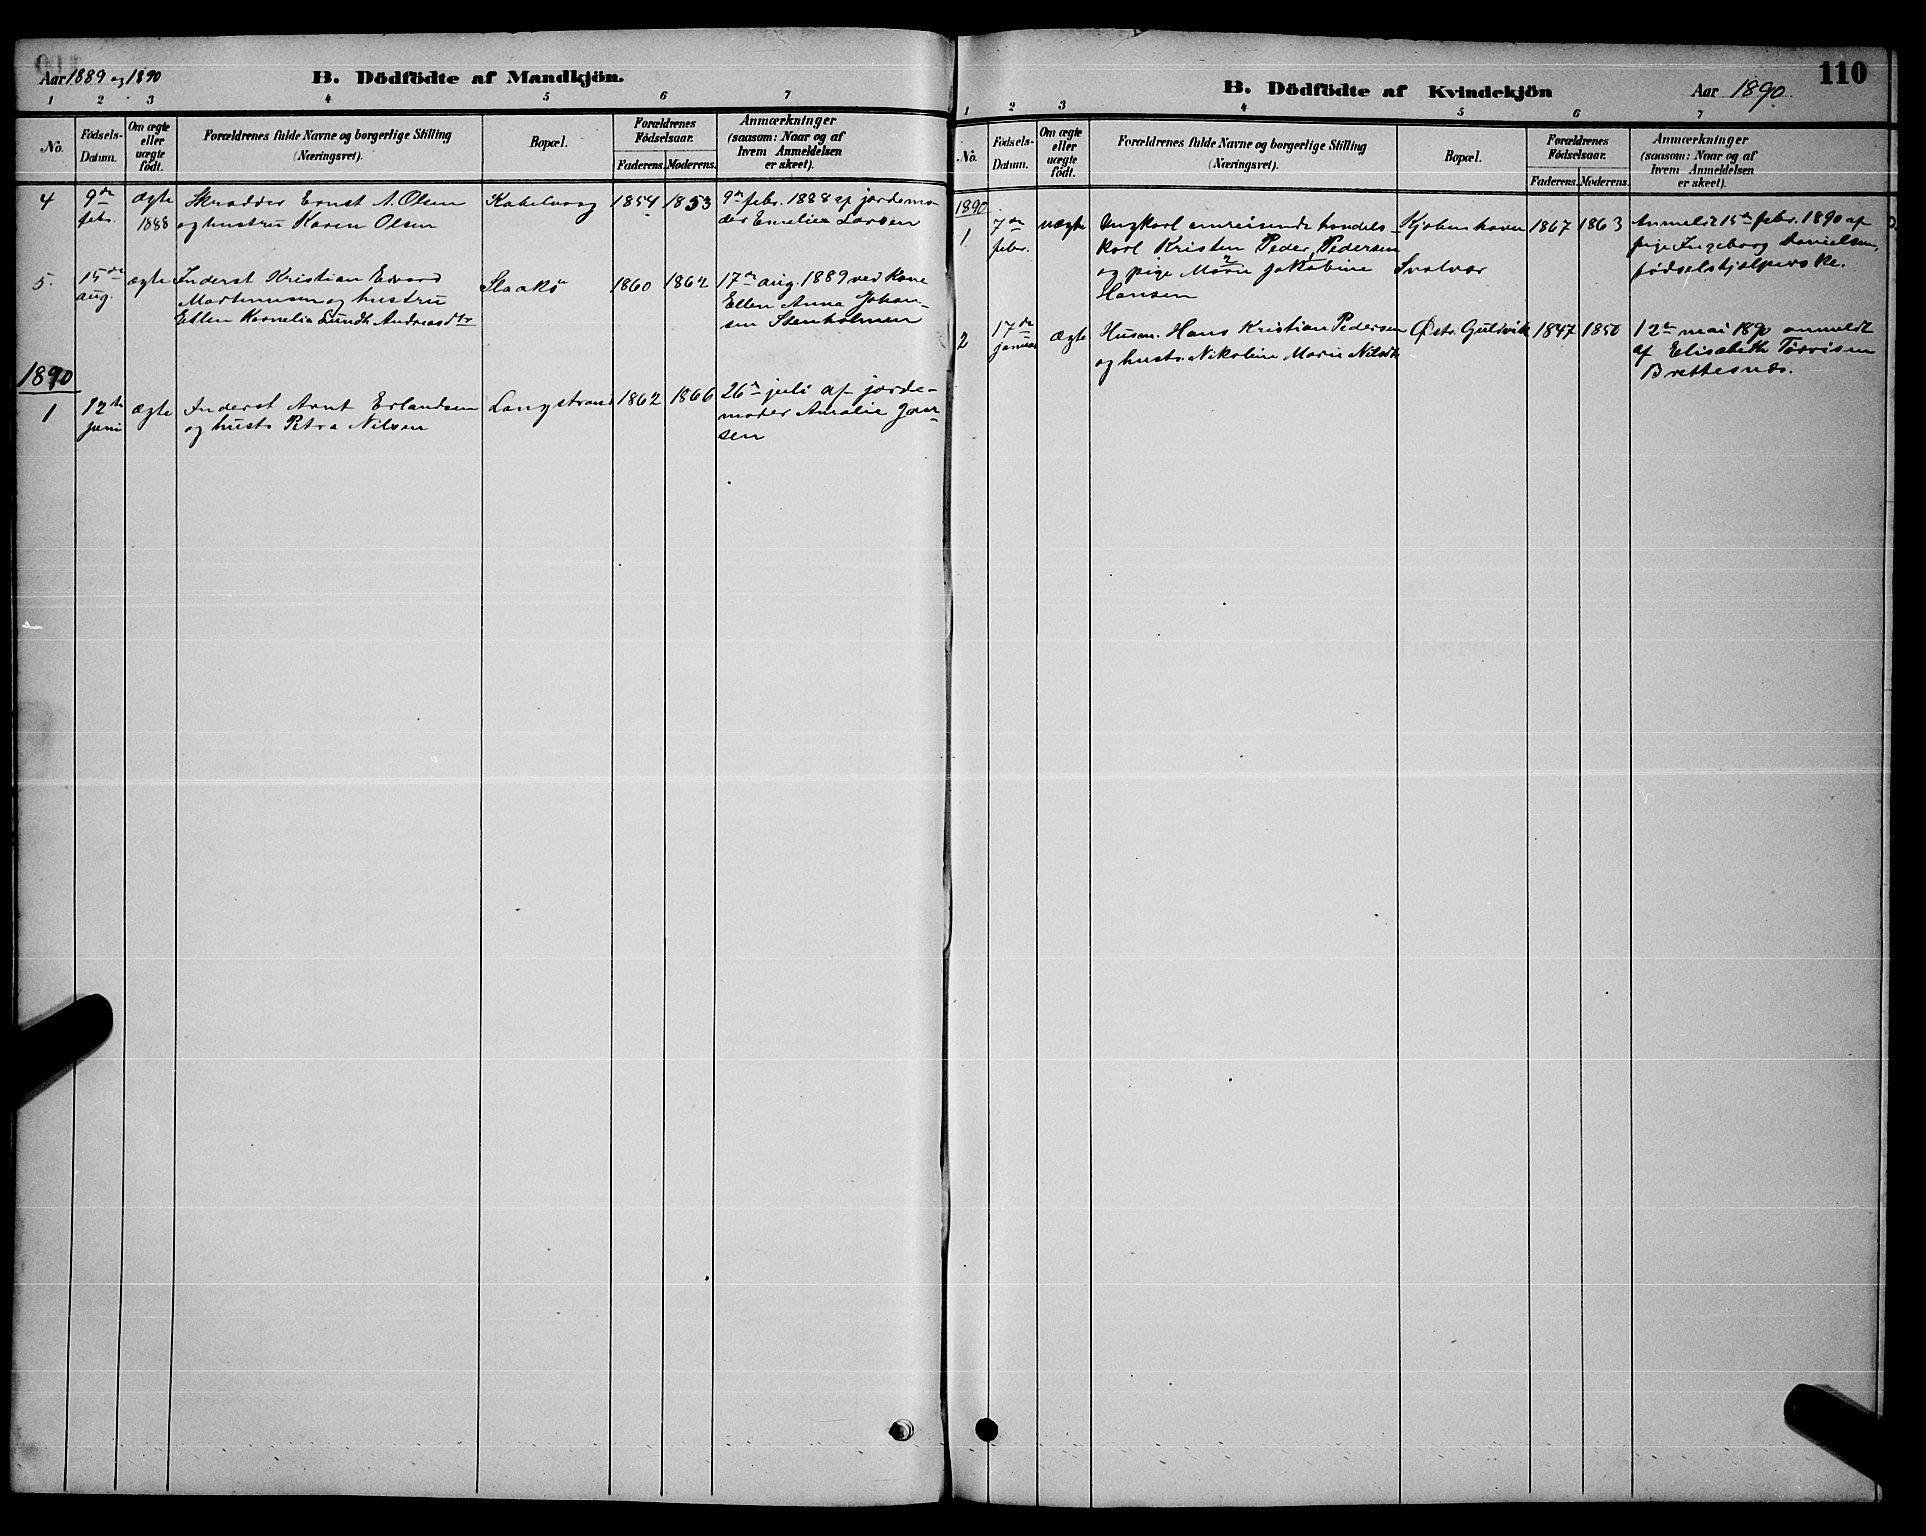 Aar 1889 og 1890
B. Dödfödte af Mandkjön.
1 2 3 4 5 6 7
No.
Födsels-
Datum.
Om ægte
eller
uægte
födt.
Forældrenes fulde Navne og borgerlige Stilling
(Næringsvei).
Bopæl.
Forældrenes
Födselsaar.
Faderens. Moderens.
Anmærkninger
(saasom: Naar og af
hvem Anmeldelsen
er skeet).
4 9de ægte Skrædder Ernst A. Olsen Kabelvaag 1854 1853 9de febr. 1888 af jordemo-
febr. 1888 og hustru Karen Olsen der Emelie Larsen
5. 15de ægte Inderst Kristian Edvard Skaakø 1860 1862 17de aug. 1889 ved kone
aug. Martinusen og hustru Ellen Anna Johan-
Ellen Kornelia Lundh Andreasdtr sen Stenholmen
1890
1 12te ægte Inderst Arnt Erlandsen Langstrand 1862 1866 26de juli af jorde-
juni og hustr. Petra Nilsen moder Amalie Jan-
sen
110
B. Dödfödte af Kvindekjön
Aar 1890.
1 2 3 4 5 6 7
No.
Födsels-
Datum.
Om ægte
eller
uægte
födt.
Forældrenes fulde Navne og borgerlige Stilling
(Næringsvei).
Bopæl.
Forældrenes
Födselsaar.
Faderens. Moderens.
Anmærkninger
(saasom: Naar og af
hvem Anmeldelsen
er skeet).
1890
1 7de uægte Ungkarl omreisende handels- Kjøbenhavn 1867 1863 Anmeldt 15de febr. 1890 af
febr. karl Kristen Peder Pedersen pige Ingeborg Danielsen,
og pige Marie Jakobine Svolvær fødselshjælperske.
Hansen
2 17de ægte Husm. Hans Kristian Pedersen Østr. Guldvik 1847 1850 12te mai 1890 anmeldt
januar og hustr. Nikoline Marie Nilsdtr af Elisabeth
Brettesnes.